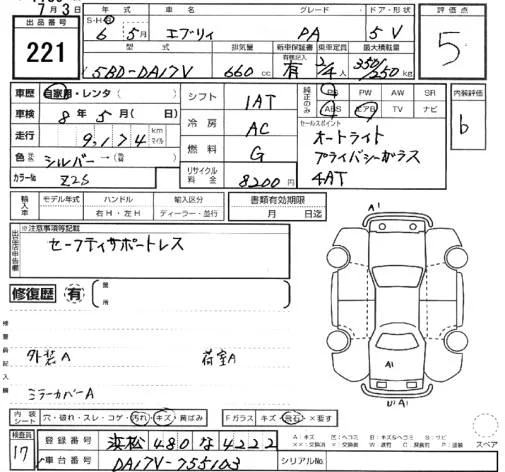 7月3日
出品番号 221
年式 車名 グレード ドア・形状
S・H・R 6年5月 エブリィ PA 5 V
型式 排気量 新車保証書 乗車定員 最大積載量
5BD-DA17V 660cc 有 記録簿記入 2/4人 350/250kg
評価点 5
車歴 自家用・レンタ( )
車検 8年5月( 日)
走行 9,174 km マイル
色 シルバー→(
カラーNo Z2S
シフト 1AT
冷房 AC
燃料 G
リサイクル料金 8200円
純正のみ PS PW AW SR
ABS エアB TV ナビ
セールスポイント
オートライト
プライバシーガラス
4AT
内装評価 b
輸入車 モデル年式 ハンドル 輸入区分 書類有効期限
右H・左H ディーラー・並行 月 日迄
出品店申告欄 ※注意事項等記載
セーフティサポートレス
修復歴 有 箇所
検査員記入欄
外装A 荷室A
ミラーカバーA
A1
A1
UA1
内装シート 穴・破れ・スレ・コゲ・汚れ・キズ・黄ばみ Fガラス キズ・飛石・×要す
検査員 17
登録番号 浜松 480 な 4222
車台番号 DA17V-755103 シリアルNo.
A:キズ U:ヘコミ B:キズ&ヘコミ S:サビ
××:交換済 ×:要交換 W:波打 C:腐食 P:塗装 スペア